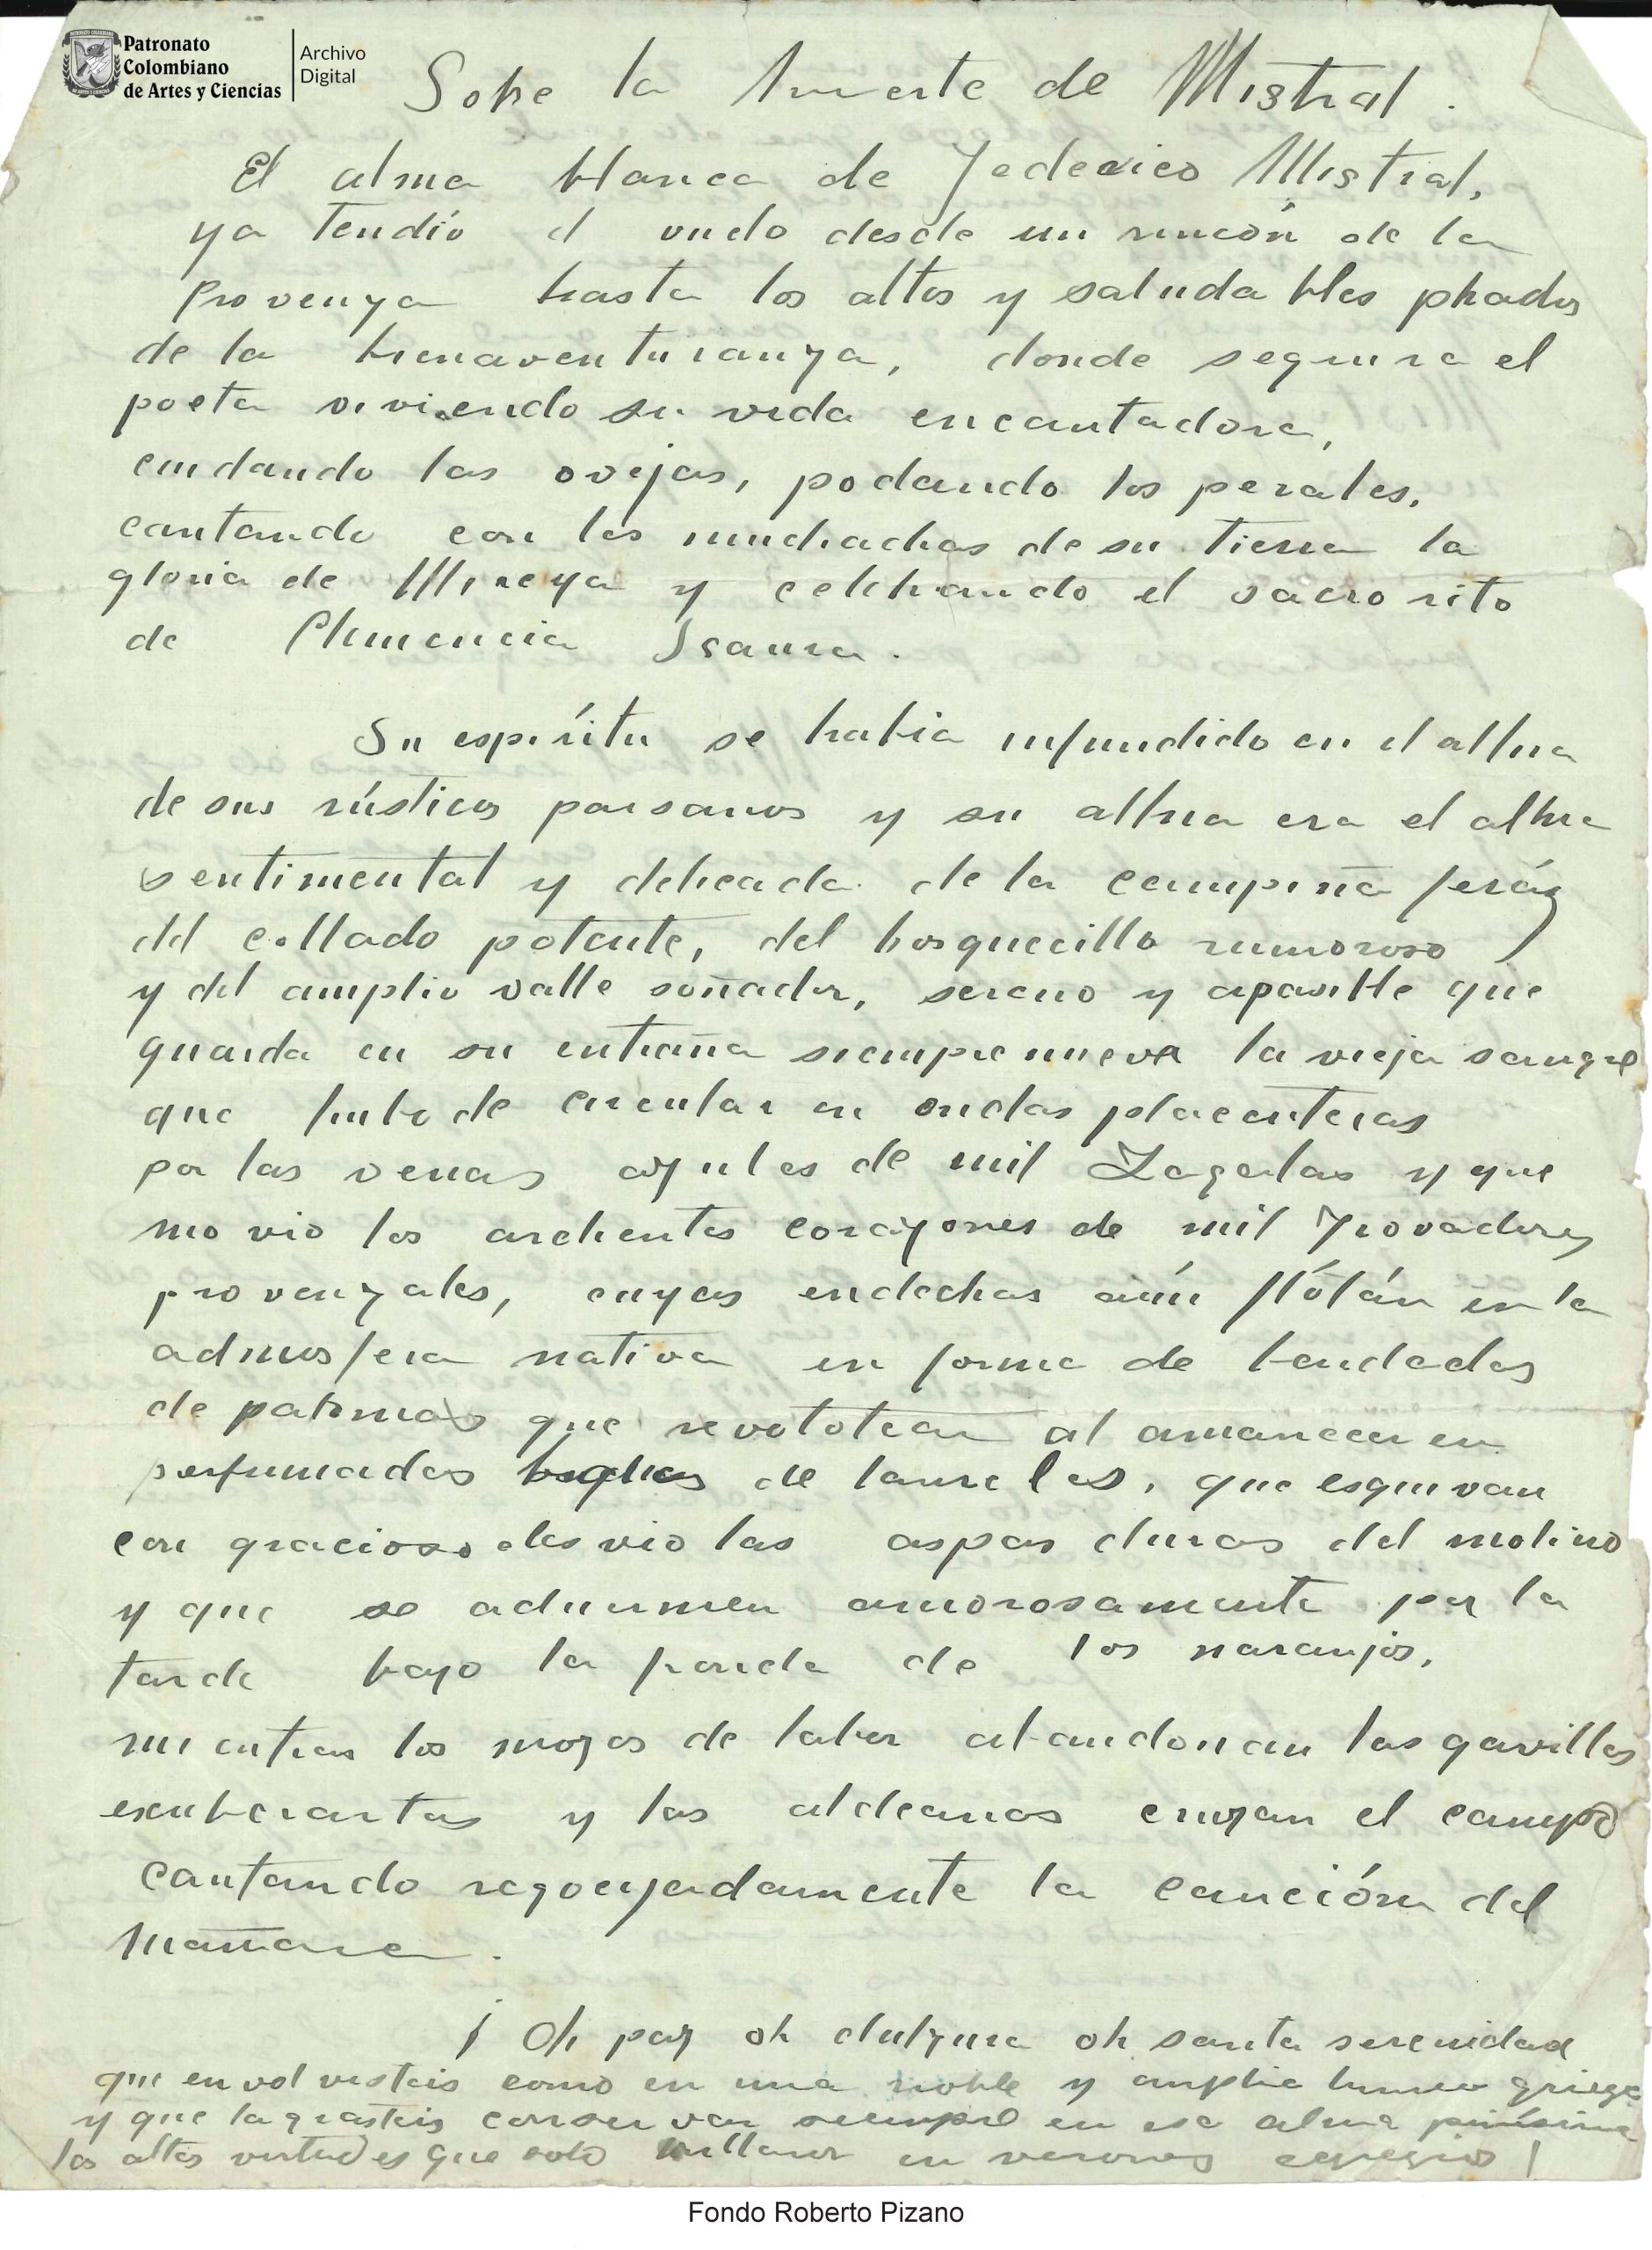 Patronato
Colombiano
de Artes y Ciencias
Archivo
Digital
Sobre la muerte de Mistral.
El alma blanca de Federico Mistral,
ya tendió el vuelo desde un rincón de la
Provenza hasta los altos y saludables prados
de la bienaventuranza, donde seguira el
poeta viviendo su vida encantadora,
cuidando las ovejas, podando los perales,
cantando con las muchachas de su tierra la
gloria de Mireya y celebrando el sacro rito
de Clemencia Isaura.
Su espíritu se habia infundido en el alma
de sus rústicos paisanos y su alma era el alma
sentimental y delicada de la campiña feráz
del collado potente, del bosquecillo rumoroso
y del amplio valle soñador, sereno y apasible que
guarda en su entraña siempre nueva la vieja sangre
que hubo de circular en ondas placenteras
por las venas azules de mil Zagalas y que
movio los ardientes corazones de mil Trovadores
provenzales, cuyas endechas aún flótán en la
admosfera nativa en forma de bandadas
de palomas que revolotean al amanecer en
perfumados bosques de laureles, que esquivan
con gracioso desvio las aspas duras del molino
y que se aduermen amorosamente por la
tarde bajo la fronda de los naranjos,
mientras los mozos de labor abandonan las gavillas
exuberantes y las aldeanas cruzan el campo
cantando regocijadamente la canción del
mañana.
¡ Oh paz oh dulzura oh santa serenidad
que envolvisteis como en una noble y amplia tunica griega
y que lograsteis conservar siempre en esa alma purísima
las altas virtudes que solo brillaron en varones egregios!
Fondo Roberto Pizano